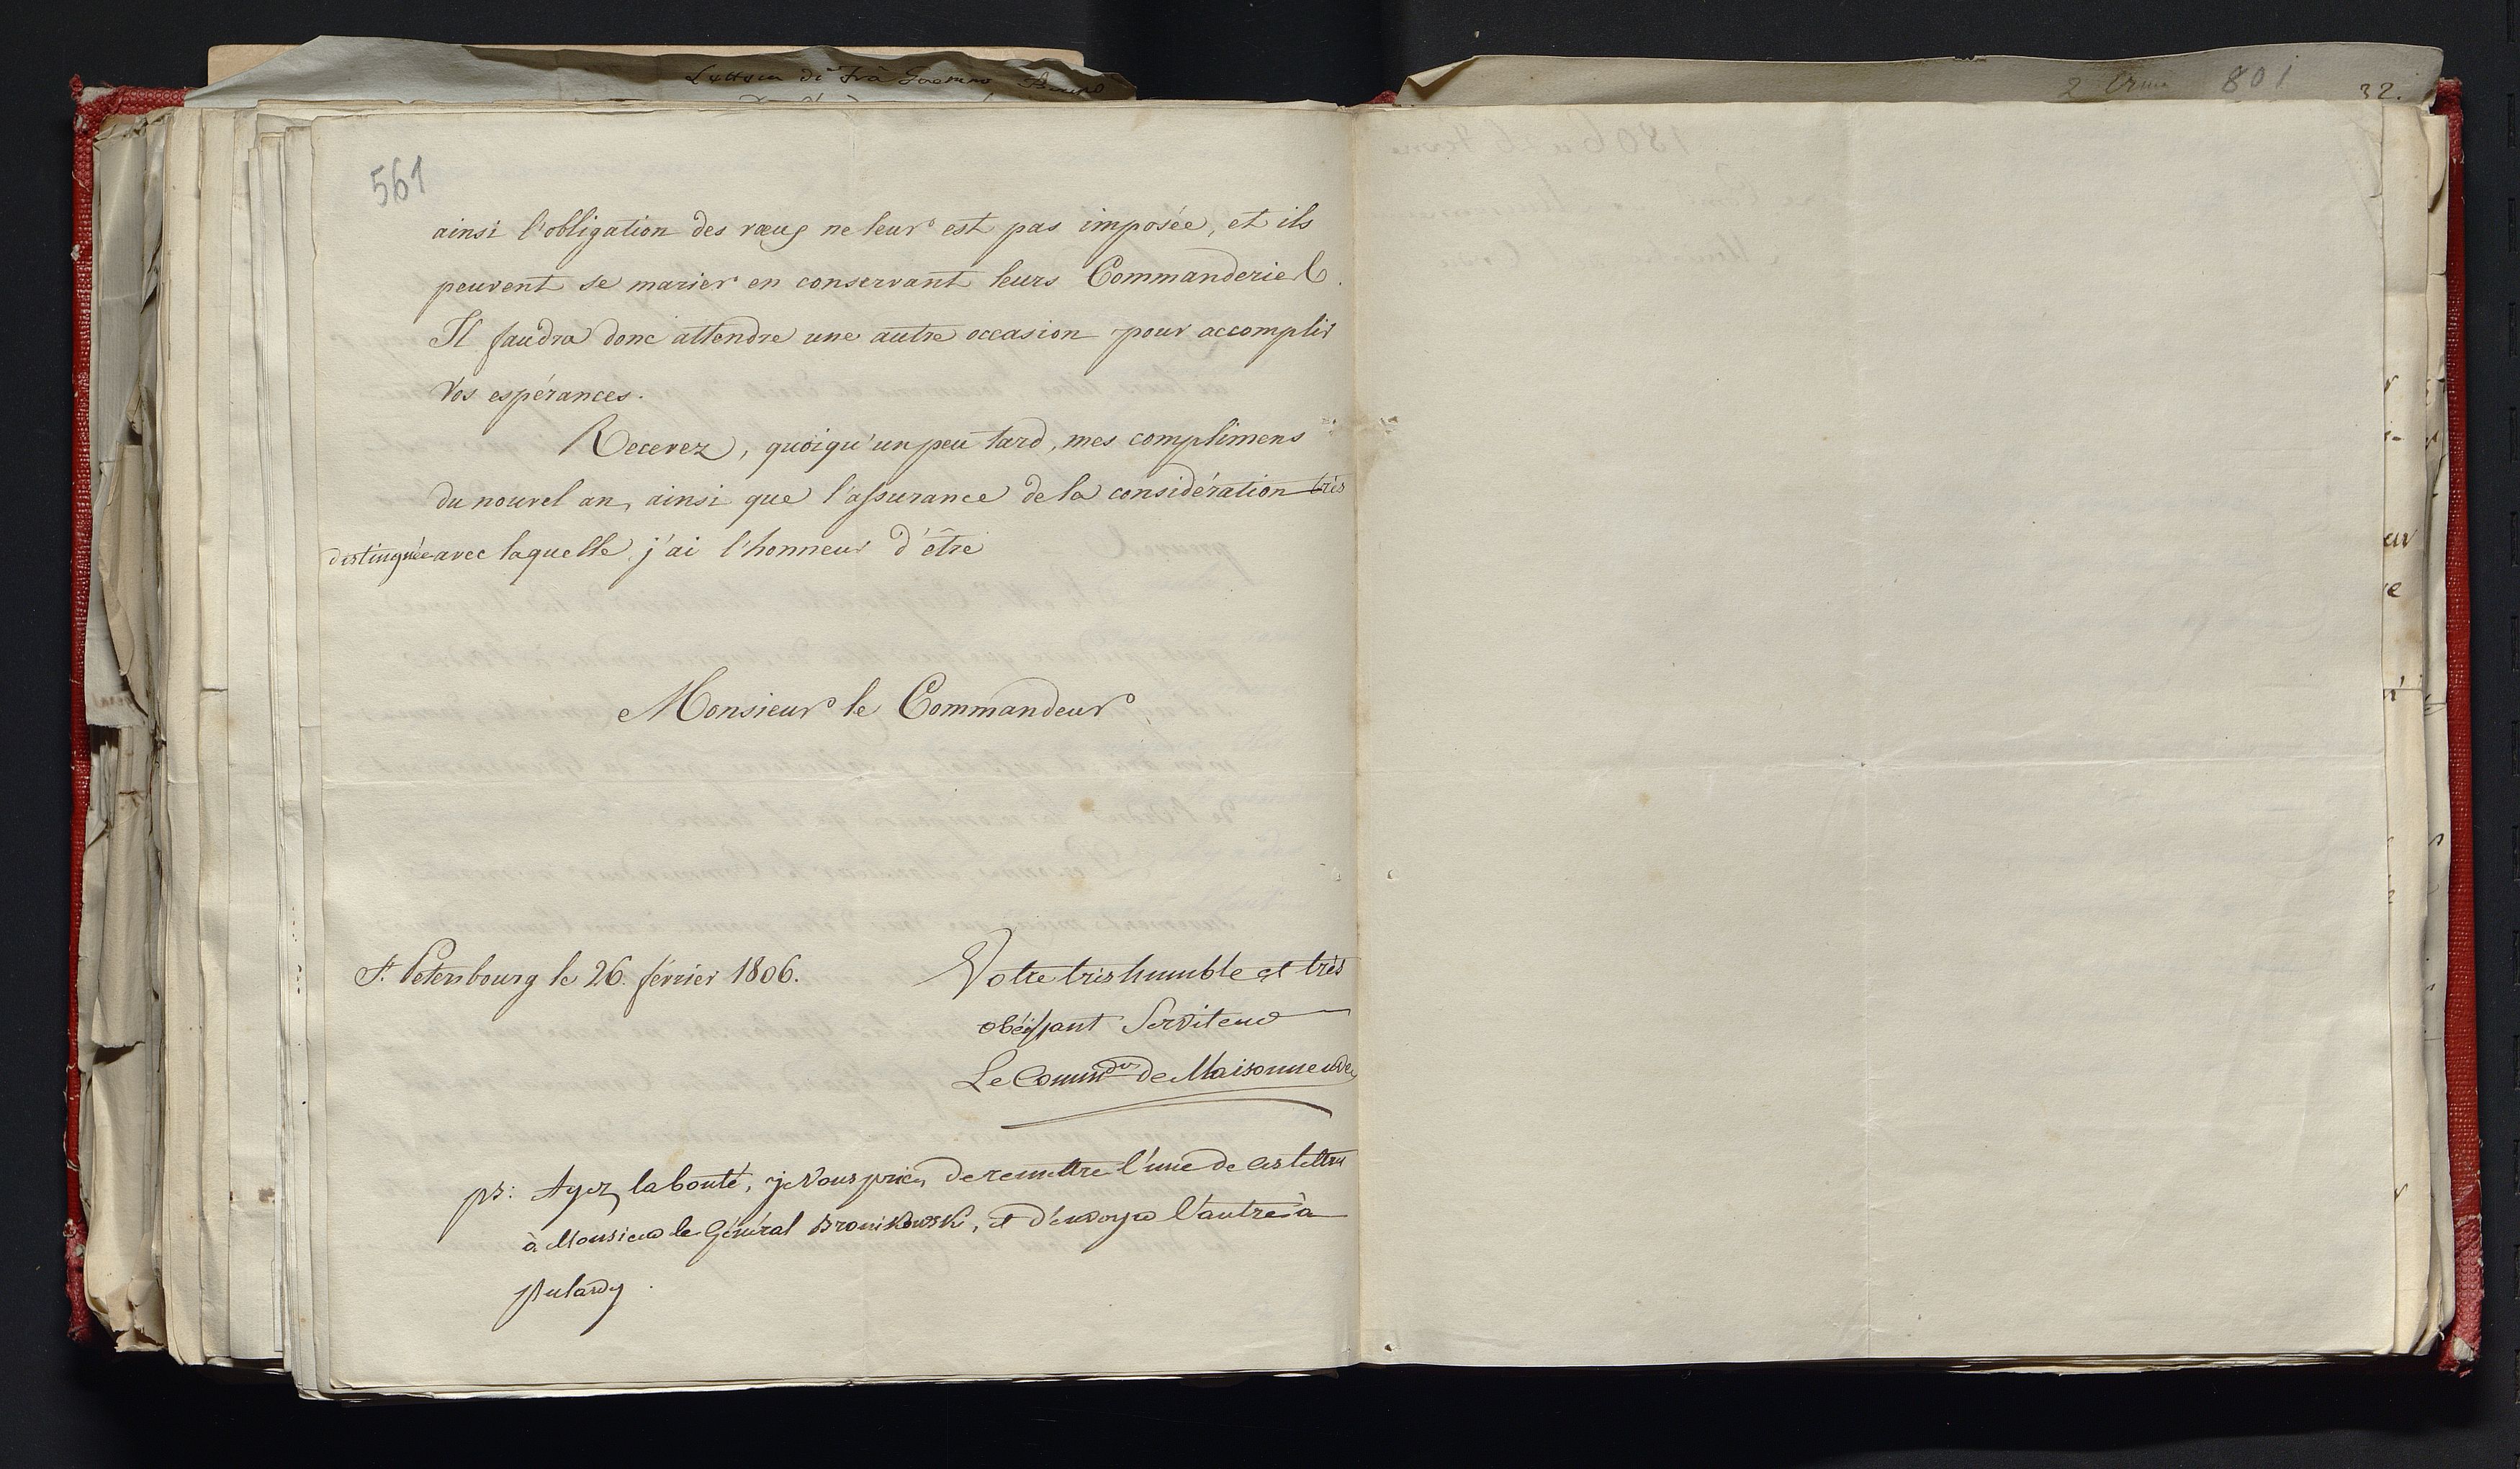 561
ainsi l'obligation des vœux ne leur est pas imposée, et ils
peuvent se marier en conservant leurs Commanderies.
Il faudra donc attendre une autre occasion pour accomplir
Vos espérances.
Recevez, quoiqu'un peu tard, mes complimens
du nouvel an, ainsi que l'assurance de la considération très
distinguée avec laquelle j'ai l'honneur d'être
Monsieur le Commandeur
St. Petersbourg le 26. février 1806.
Votre très humble et très
obéissant Serviteur
Le Commdr de Maisonneuve
ps: Ayez la bonté, je Vous prie, de remettre l'une de ces lettres
à Monsieur le Général Bronikowski, et d'envoyer l'autre à
Pulawy.
801
32.